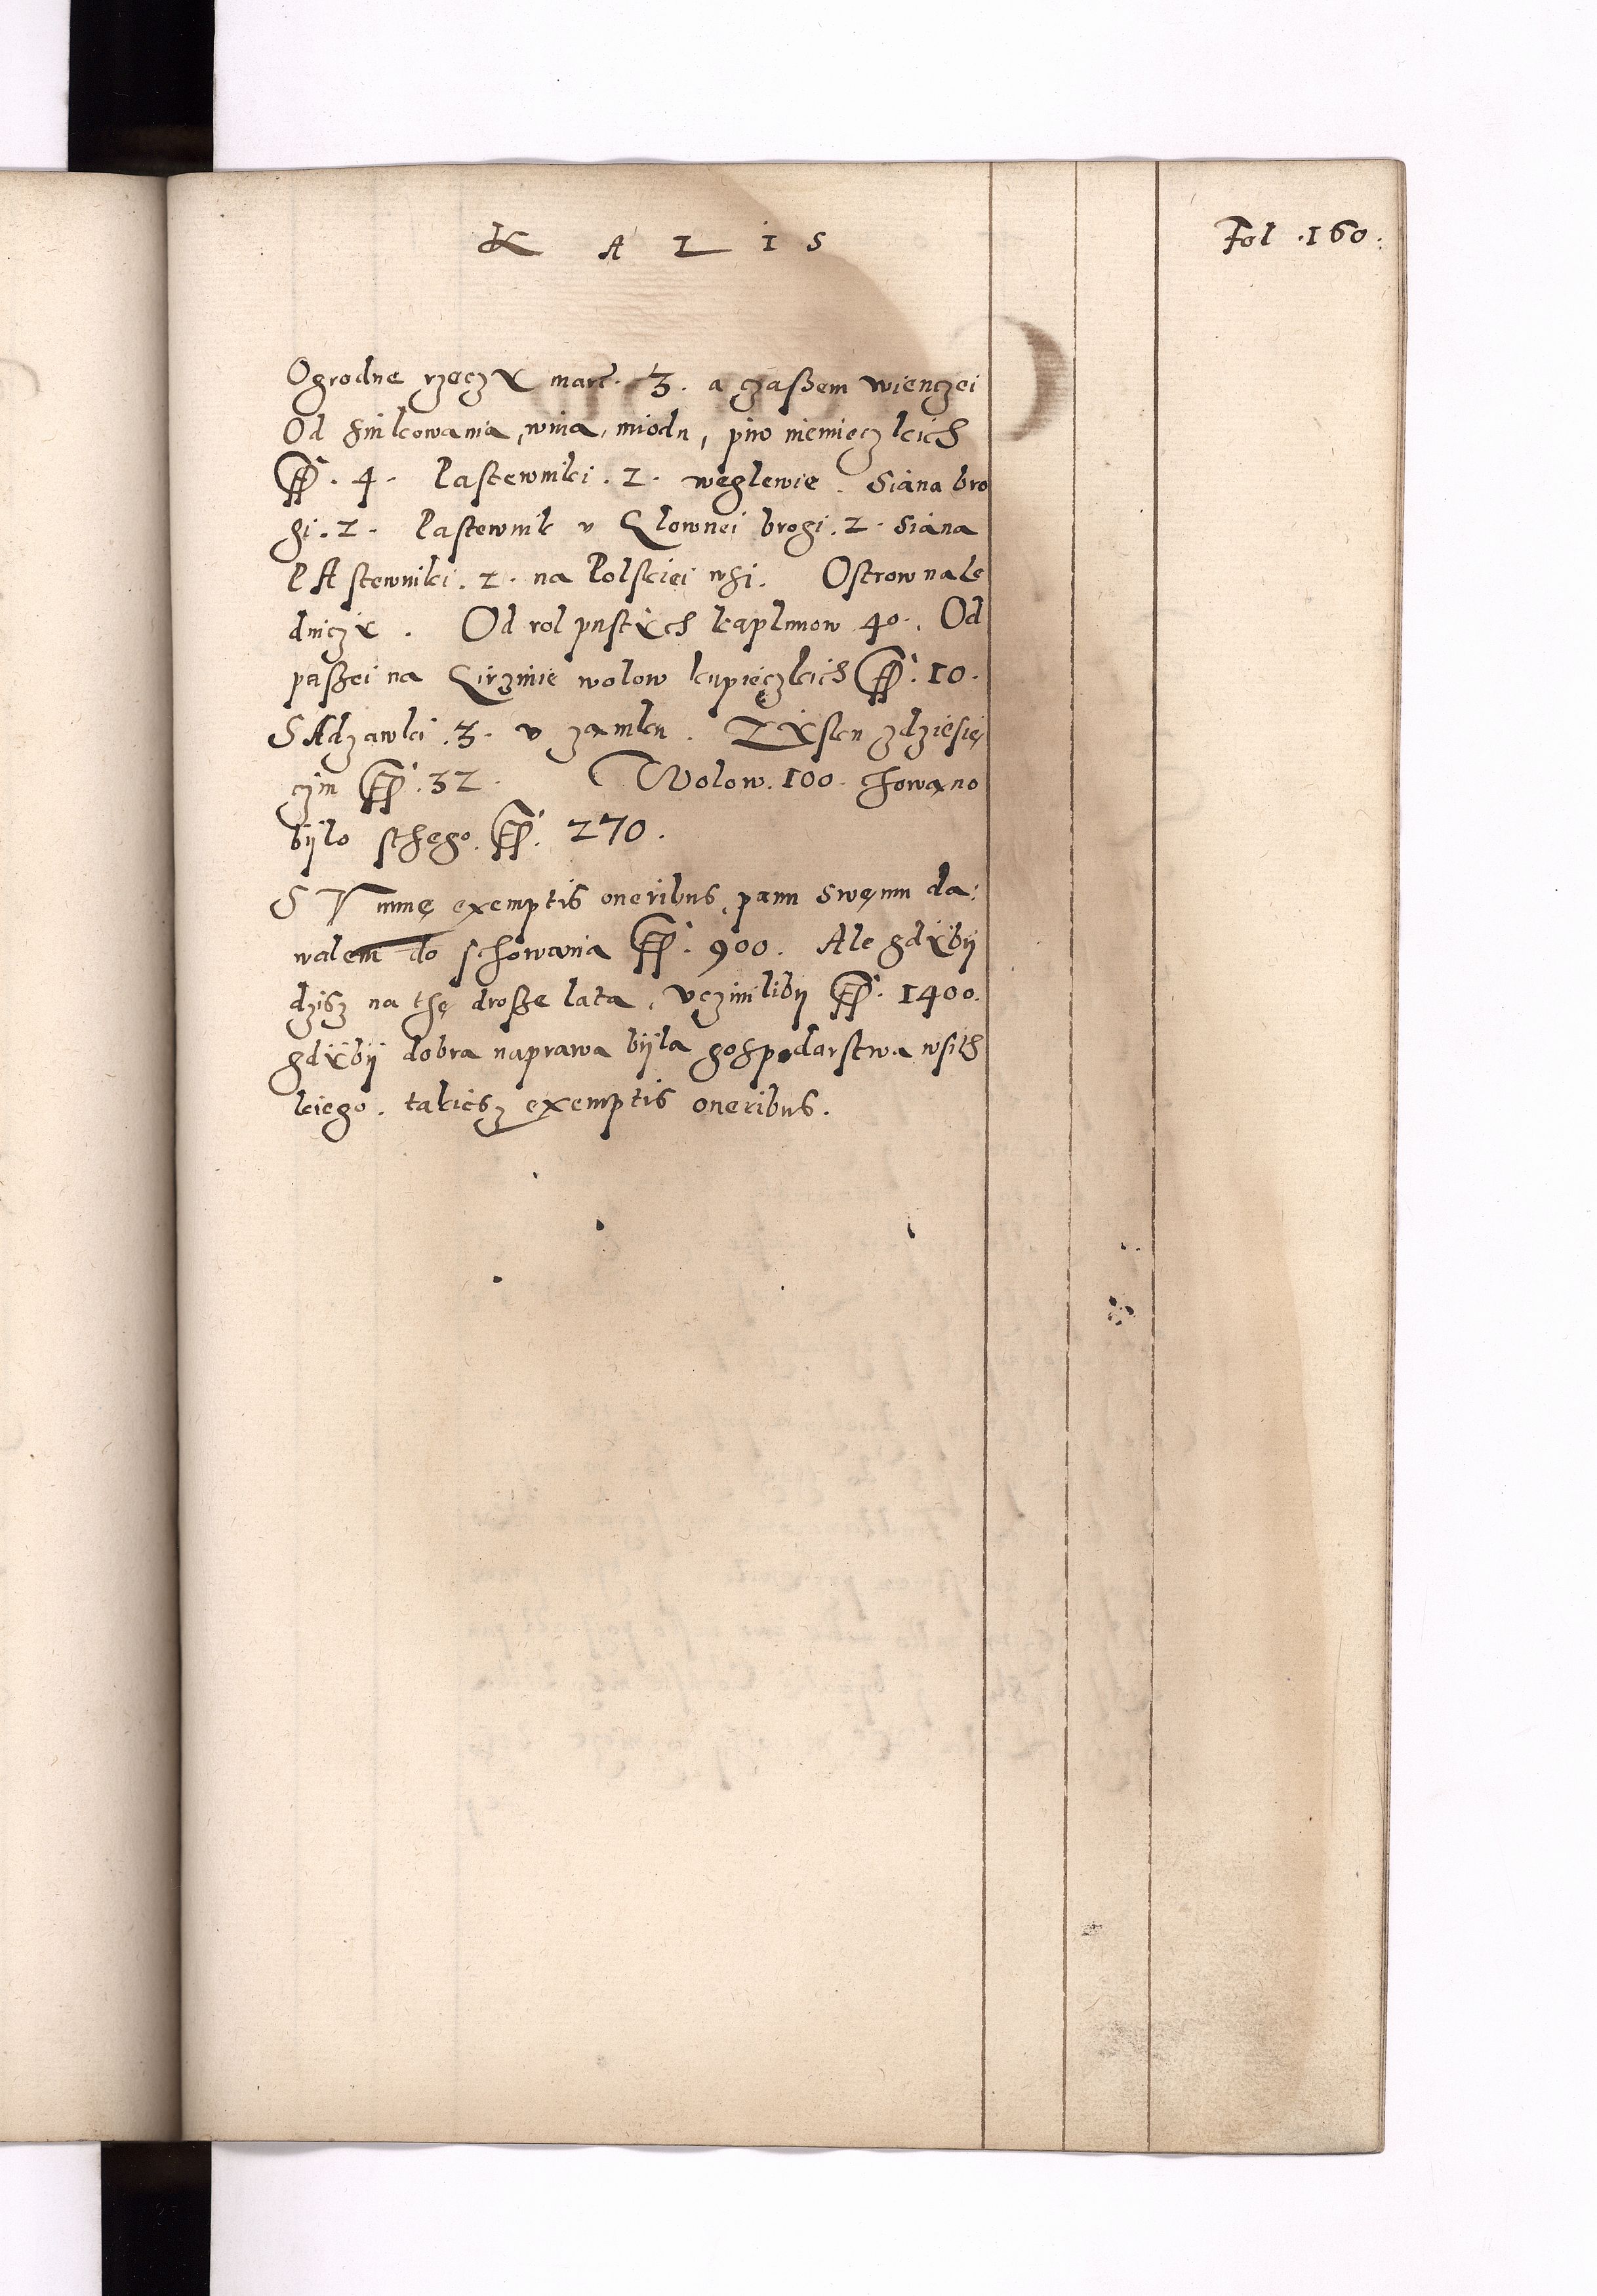 K A L I S
Fol .160.
Ogrodne rzeczy marc. 3. a czaßem wienczei
Od sinkowania, wina, miodu, piw niemieczkich
ff. 4. Pastewniki .2. weglewie. Siana bro
gi .2. Pastewnik v Glownei brogi .2. siana
PAstewniki .2. na Polskiei wsi. Ostrow nale
dniczy. Od rol pustych kaplunow 40. Od
paßei na wolow kupieczkich ff. 10.
SAdzawki .3. v zamku. zdziesię
cyin ff. 32. Wolow .100. chowano
bylo sthego. ff. 270.
SVmmę exemptis oneribus, panu swęmu da:
walem do schowania ff. 900. Ale gdyby
dzisz na thę droßze lata, vcziniliby ff. 1400.
gdyby dobra naprawa byla gospodarstwa wsith
kiego. takiesz exemptis oneribus.